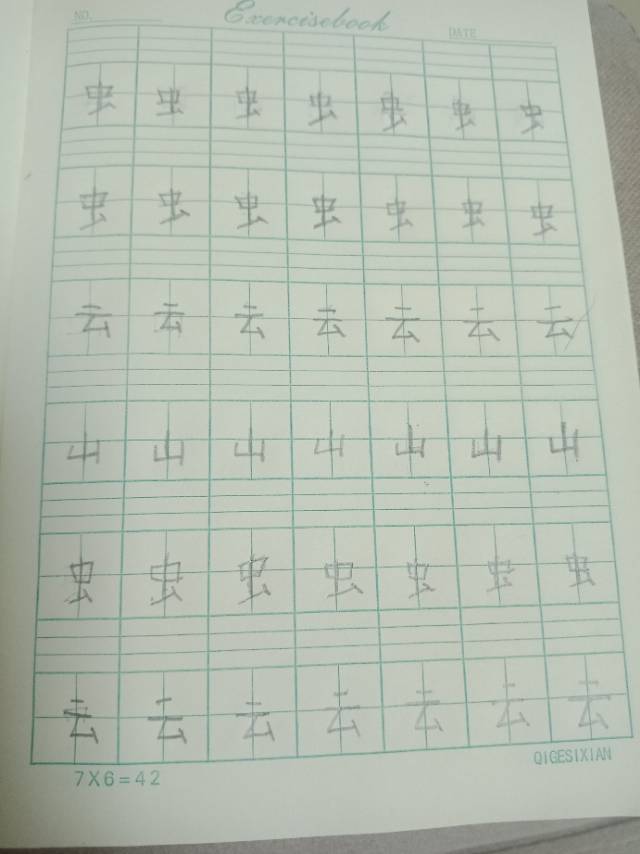 NO.
Exercisebook
DATE
虫 虫 虫 虫 虫 虫 虫
虫 虫 虫 虫 虫 虫 虫
云 云 云 云 云 云 云
山 山 山 山 山 山 山
虫 虫 虫 虫 虫 虫 虫
云 云 云 云 云 云 云
7X6=42
QIGESIXIAN